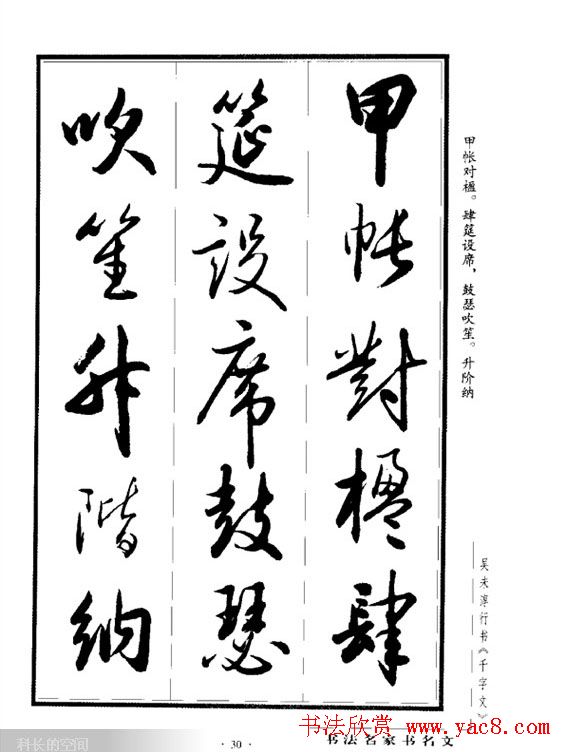 甲帐對楹肆
筵设席鼓瑟
吹笙升階纳
甲帐对楹。肆筵设席，鼓瑟吹笙。升阶纳
吴未淳行书《千字文》
· 30 ·
书法名家书名文
书法欣赏 www.yac8.com
科长的空间